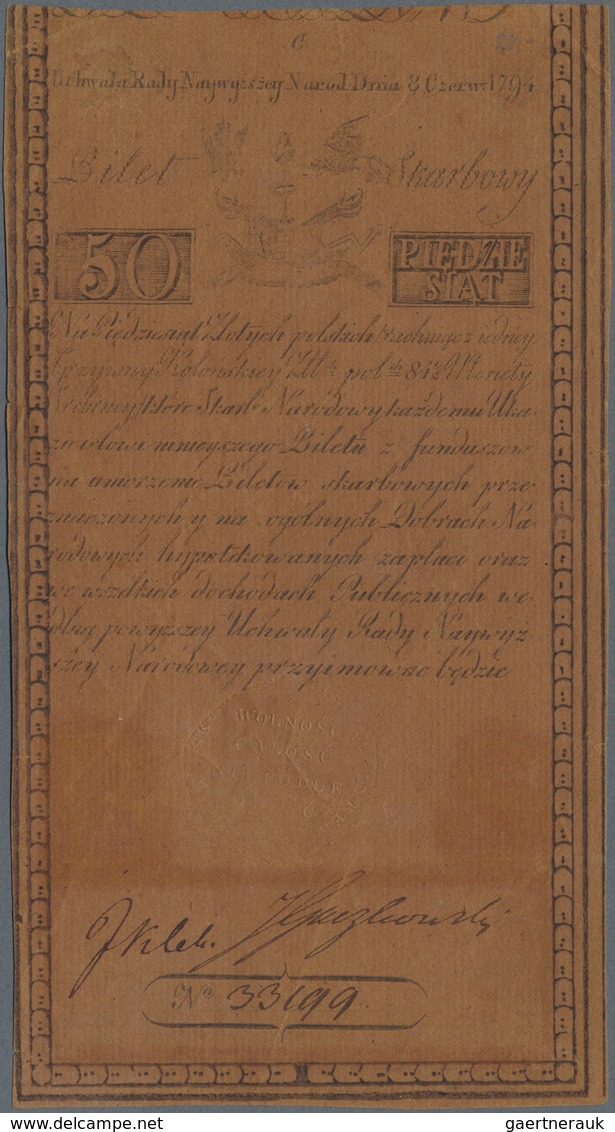 C
Uchwała Rady Naywyższey Narod. Dnia 8 Czerw. 1794.
Bilet Skarbowy
50 PIĘDZIE
SIĄT
Na Piędziesiąt Złotych polskich rachuiąc z iedney
Grzywny Kolonskiey Złł. pol. 84½ Monety
Srebrney, które Skarb Narodowy każdemu Uka-
zicielowi ninieyszego Biletu z funduszów
na umorzenie Biletów skarbowych prze-
znaczonych y na ogólnych Dobrach Na-
rodowych hypotekowanych zapłaci oraz
we wszelkich dochodach Publicznych we-
dług powyższey Uchwały Rady Naywyż-
szey Narodowey przyimować będzie
WOLNOSC
CAŁOSC
No 33199
www.delcampe.net
gaertnerauk